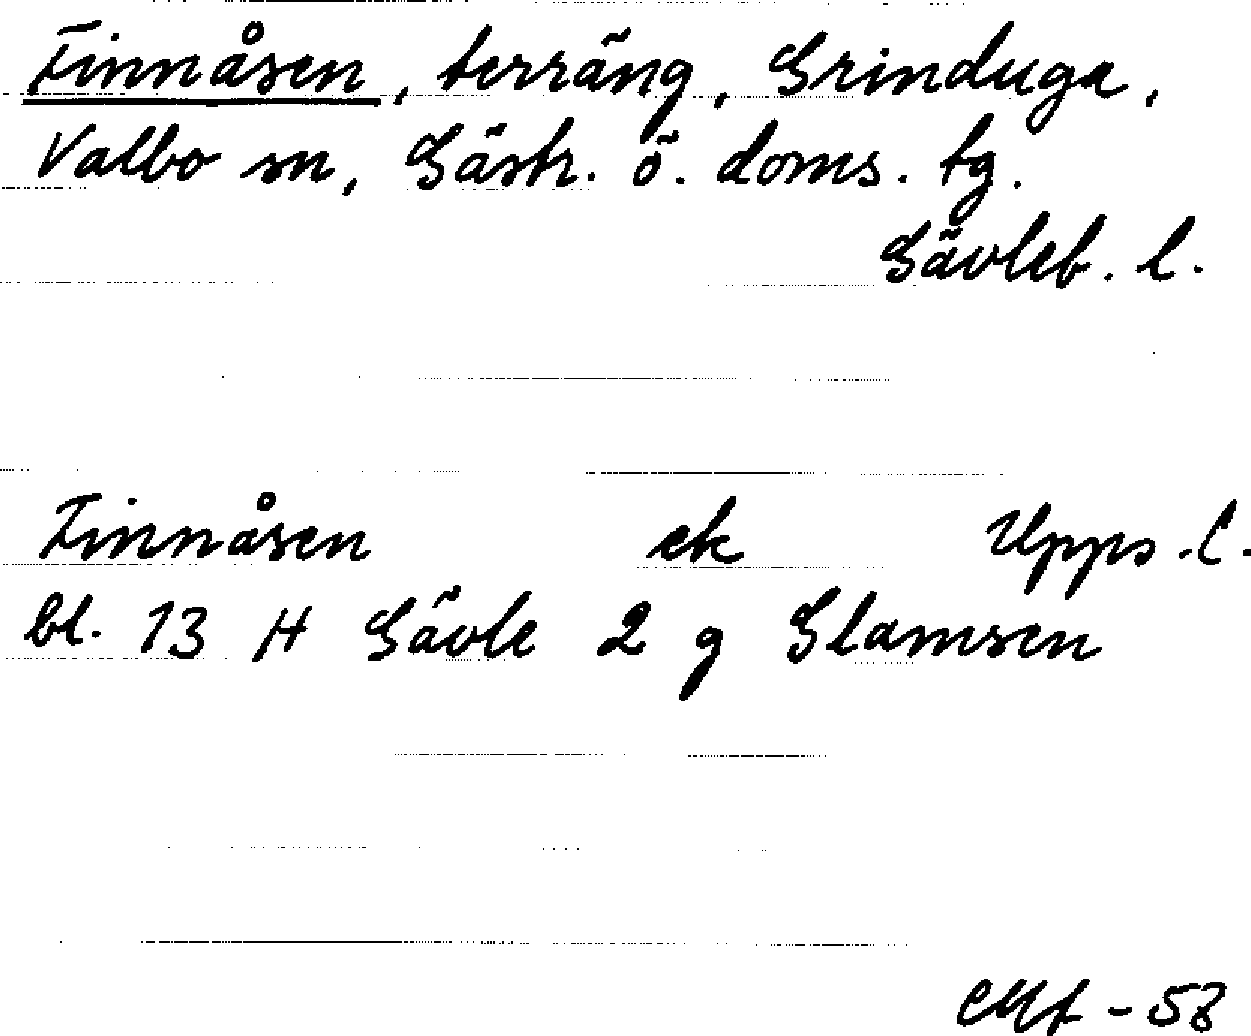 Finnåsen, terräng, Grinduga,
Valbo sn, Gästr. ö. doms. tg.
Gävleb. l.
Finnåsen ek Upps. l.
bl. 13 H Gävle 2 g Glamsen
-58